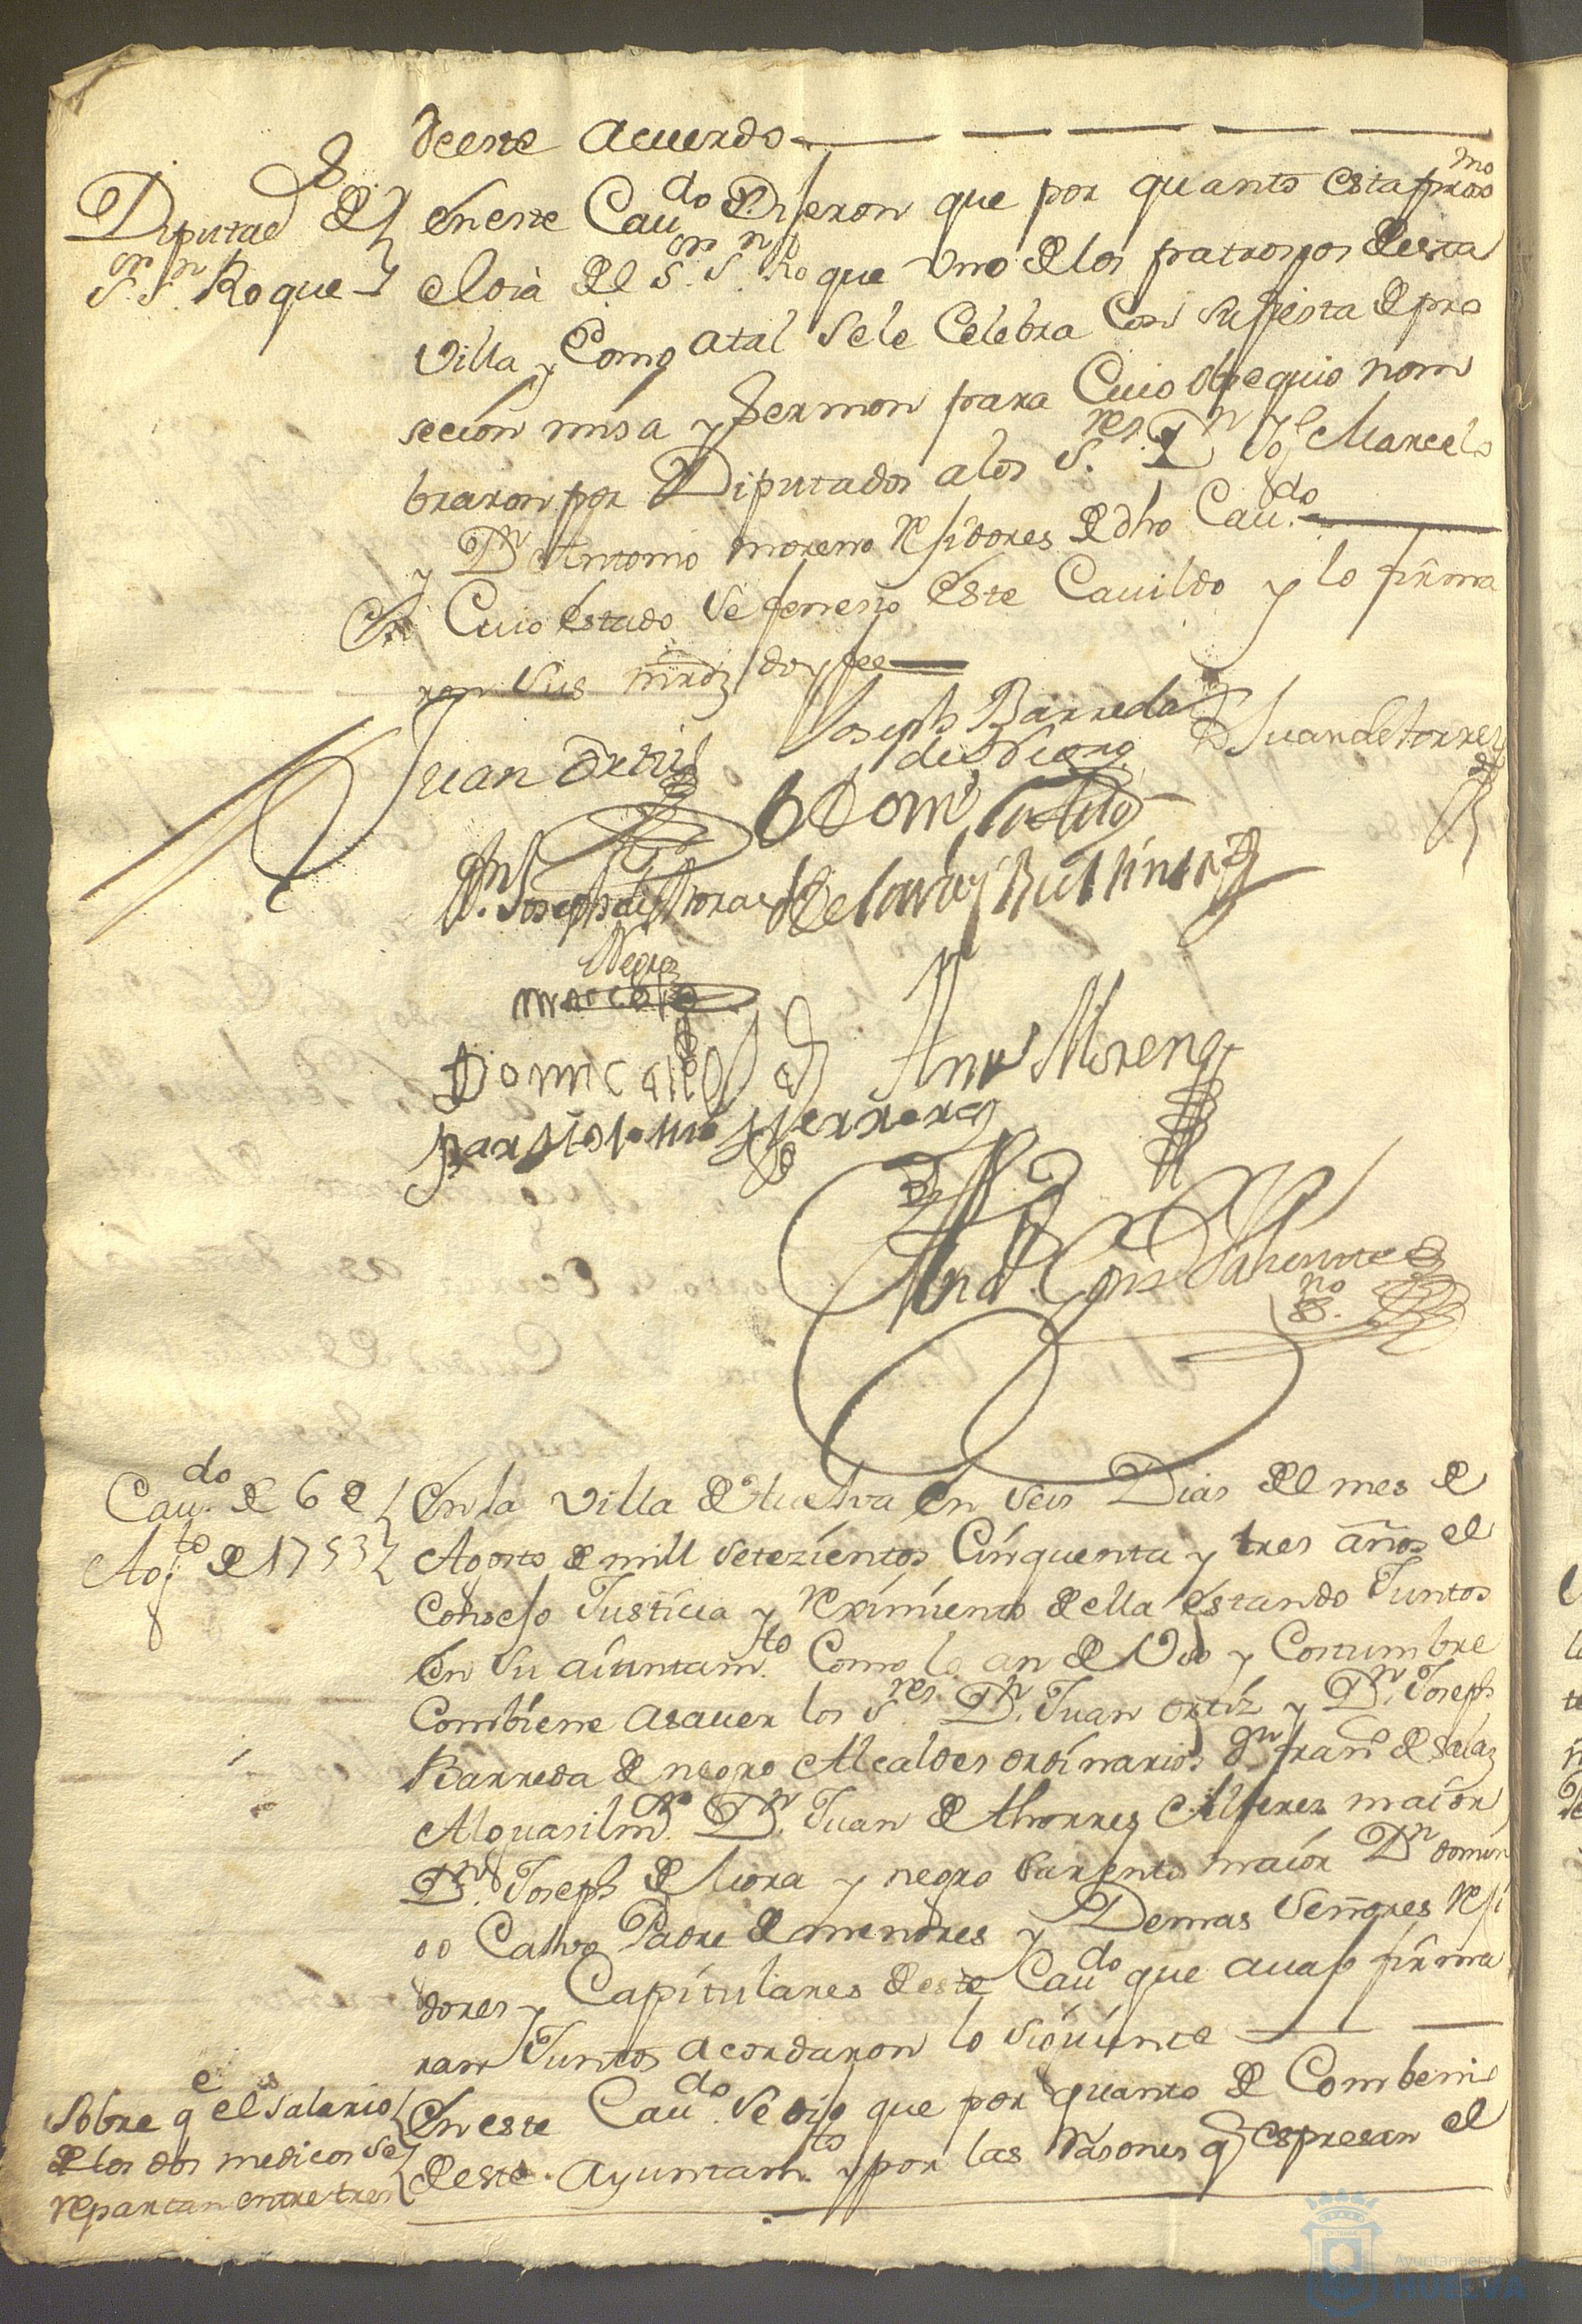 deeste acuerdo
Diputad.s de
S.or S.n Roque
En este Cau.do Dijeron que por quanto esta proximo
el dia del S.or S.n Roque uno de los patronos de esta
Villa y Como atal sele Celebra Con su fiesta de pro
secion misa y sermon para Cuio obsequio nom
braron por Diputados alos S.res D.n Josef Marcelo
y D.n Antonio moreno Rejidores de dho Cau.do
En Cuio estado se feneció Este Cauildo y lo firma
ron sus mrdz doy fee
Juan Ortiz
Joseph Barreda
de Negro
D Juan de torres
D.n Joseph de Mora
Negro
marcelo
Domi Calbo
Ant Moreno
Bartolome Herrera
And. Gonz Valiente
no
Cau.do de 6 de
Ago.to de 1753
En la villa de Huelva En seis Dias del mes de
Agosto de mill setezientos Cinquenta y tres años el
Consejo Justicia y reximiento de ella Estando Juntos
En su aiuntam.to Como lo an de Uso y Costumbre
Combiene asauer los S.res D.n Juan ortiz y D.n Joseph
Barreda de negro Alcaldes ordinarios D.n fran.co de Salas
Alguasil m.or D.n Juan de thorres Alferez maior
D.n Joseph de Mora y negro Sarjento maior D.n domin
go Calbo Padre de menores y Demas Señores Reji
dores y Capitulares deeste Cau.do que auajo firma
ran Juntos acordaron lo siguiente
Sobre q.e el salario
de los dos medicos se
repartan entre tres
En este Cau.do se dijo que por quanto de Combenio
deeste Ayuntam.to y por las rasones q espresan el
Ayuntamiento
HUELVA